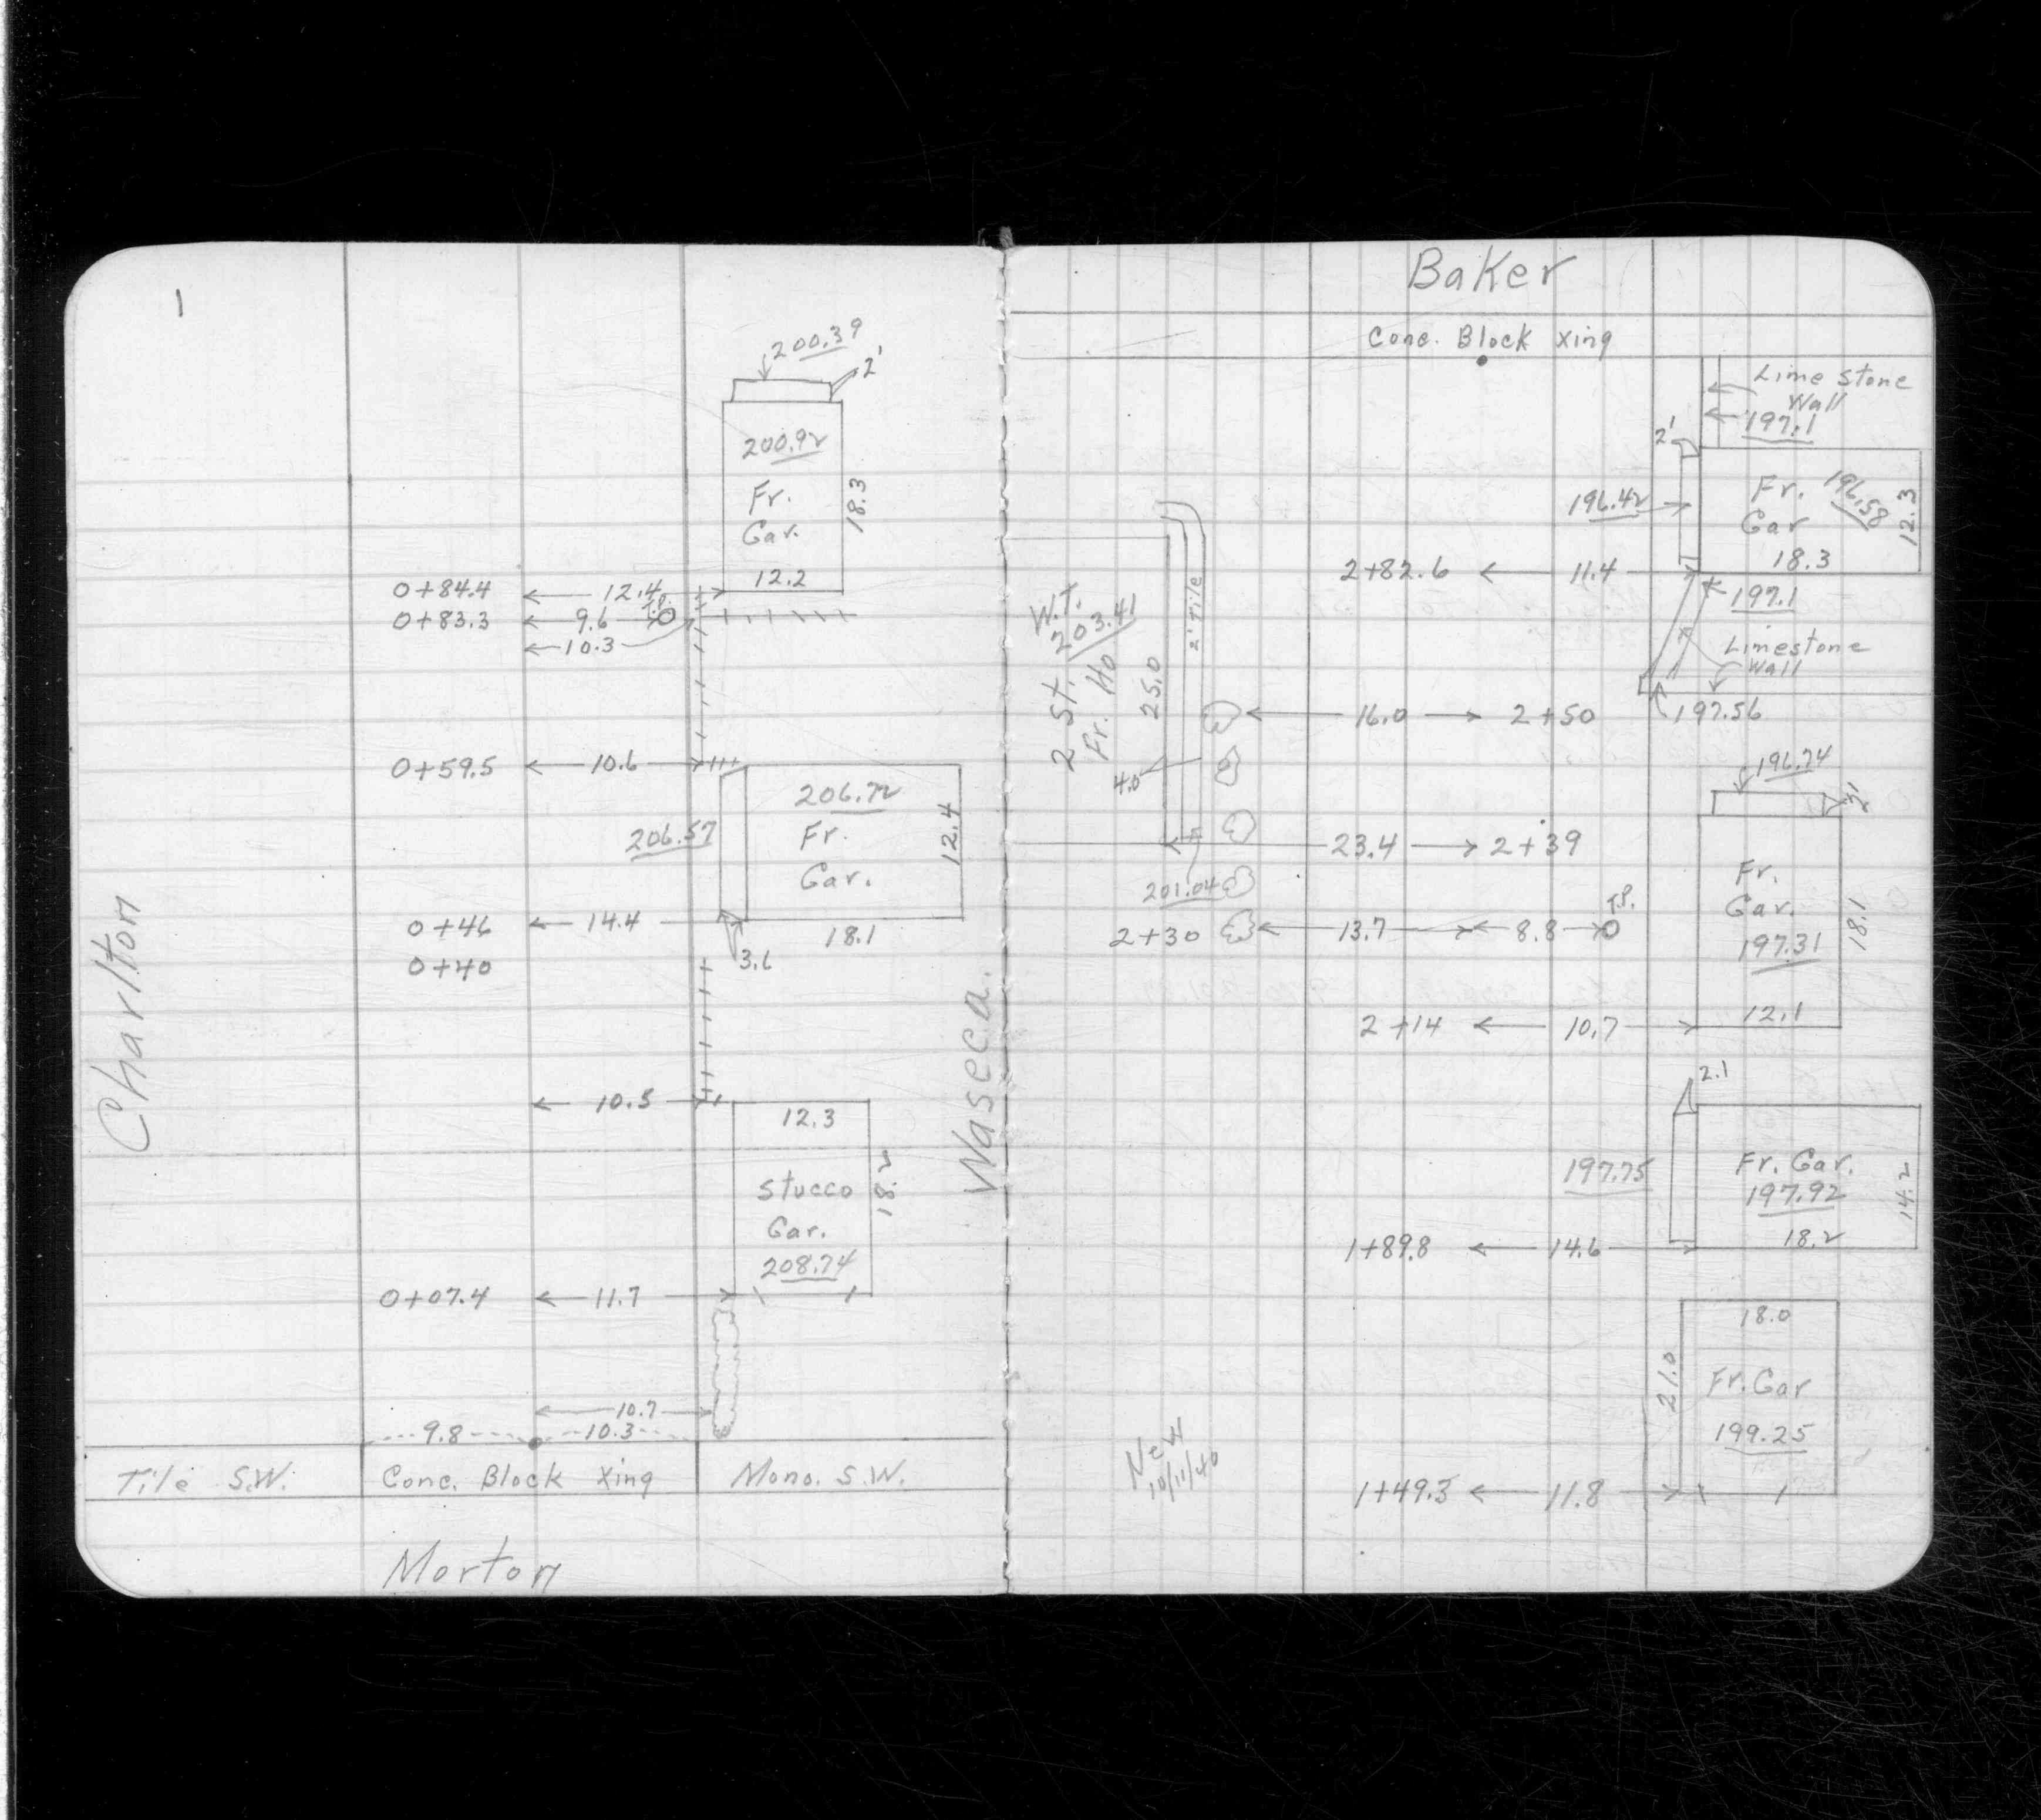 1
200.39
2'
200.92
Fr.
Gar.
18.3
12.2
0+84.4 12.4
T.P.
0+83.3 9.6
10.3
0+59.5 10.6
206.72
206.57
Fr.
Gar.
12.4
0+46 14.4
18.1
0+40
3.6
Charlton
Waseca.
10.5
12.3
Stucco
Gar.
18.2
208.74
0+07.4 11.7
10.7
9.8 10.3
Tile S.W. Conc. Block Xing Mono. S.W.
Morton
Baker
Conc. Block Xing
Lime Stone
Wall
197.1
2'
196.42
Fr. 196.58
Gar
12.3
18.3
2+82.6 11.4
197.1
Limestone
Wall
197.56
W.T.
203.41
2 St.
Fr. Ho
25.0
2' Tile
16.0 2+50
4.0
196.74
2'
23.4 2+39
Fr.
Gar.
197.31
18.1
12.1
201.04
T.P.
2+30 13.7 8.8
2+14 10.7
2.1
197.75
Fr. Gar.
197.92
14.2
18.2
1+89.8 14.6
18.0
21.0
Fr. Gar
199.25
New
10/11/40
1+49.3 11.8